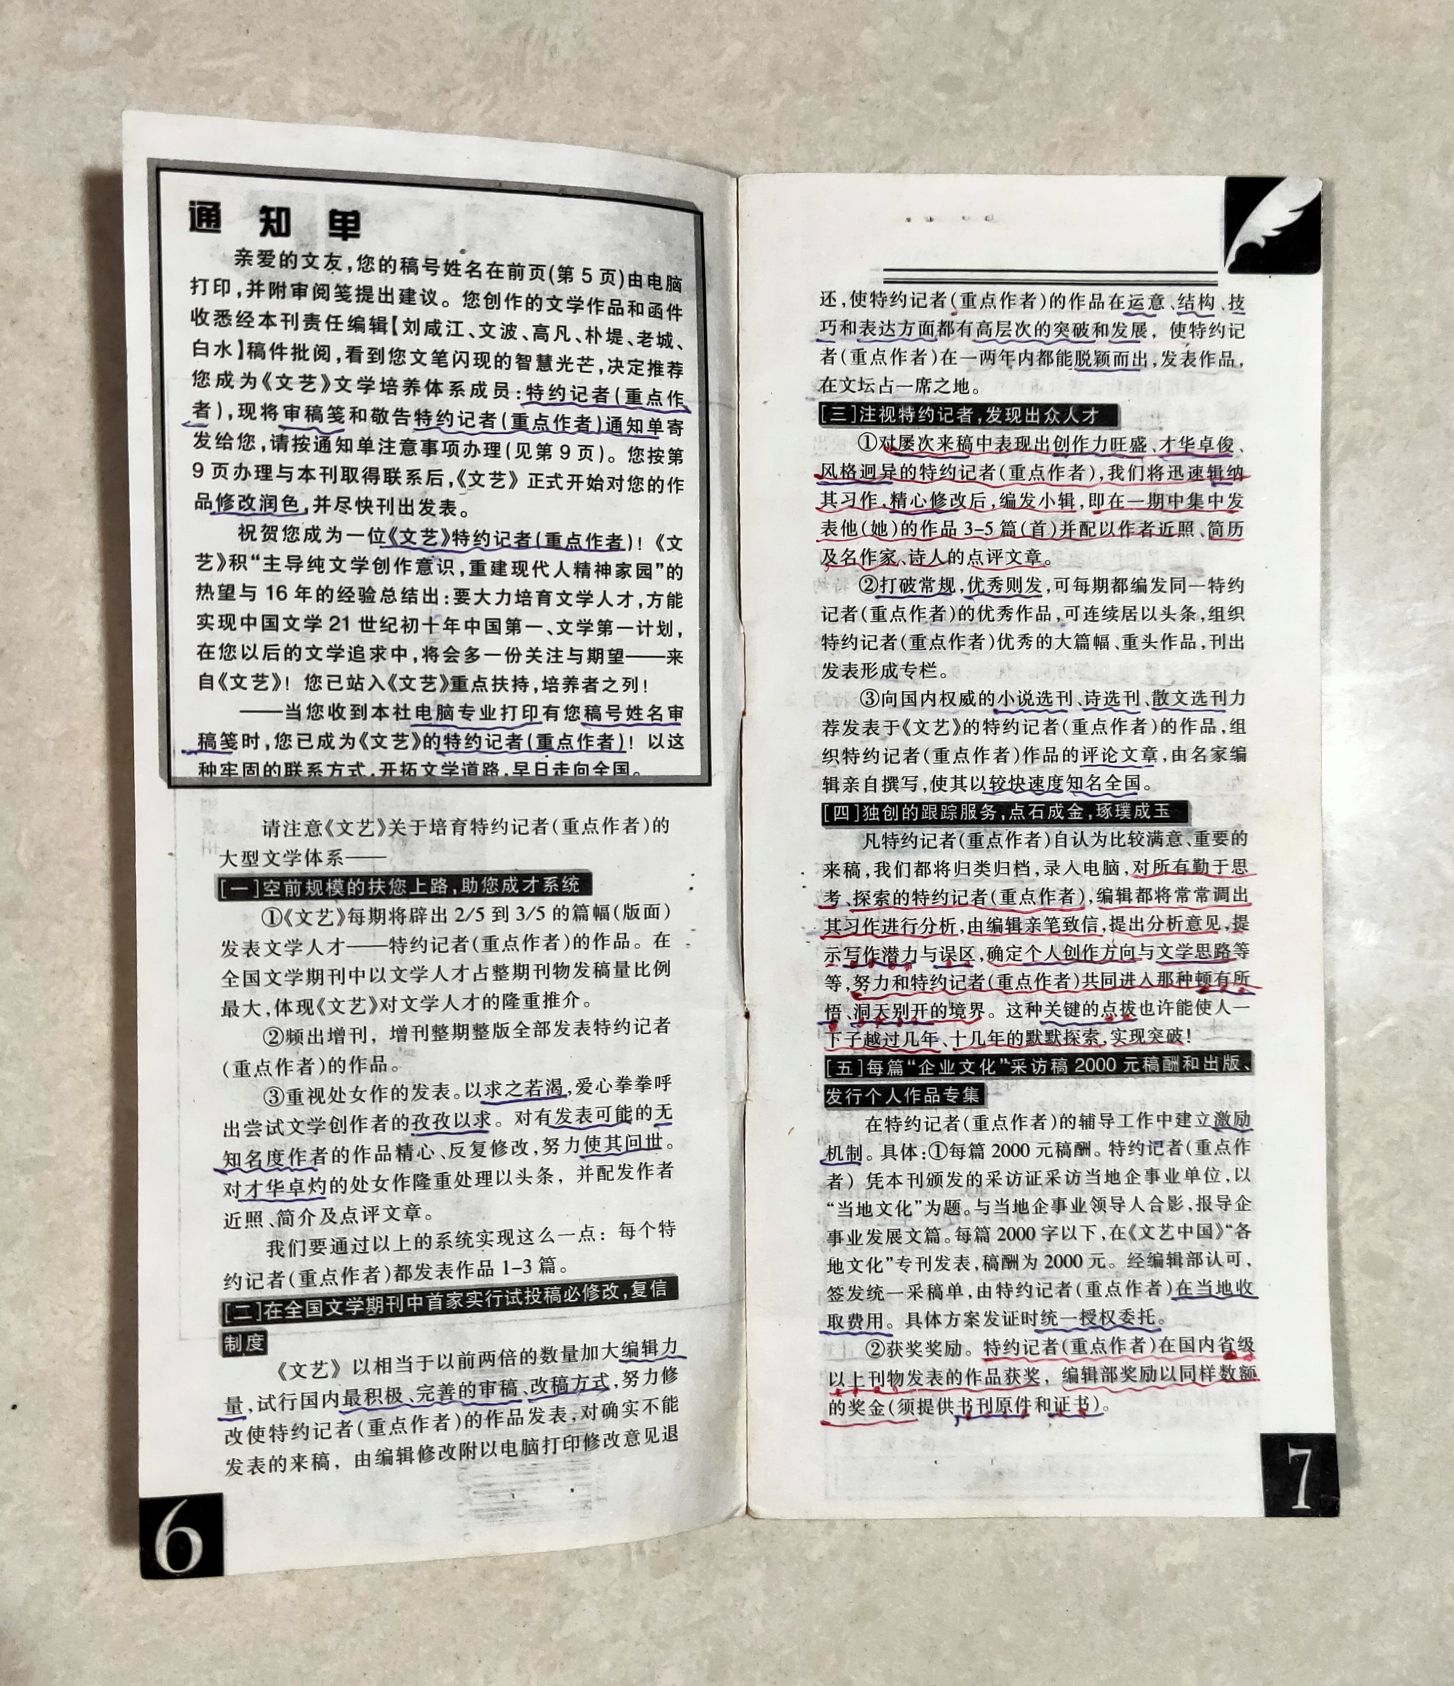 通知单
亲爱的文友,您的稿号姓名在前页(第5页)由电脑
打印,并附审阅笺提出建议。您创作的文学作品和函件
收悉经本刊责任编辑【刘咸江、文波、高凡、朴堤、老城、
白水】稿件批阅,看到您文笔闪现的智慧光芒,决定推荐
您成为《文艺》文学培养体系成员:特约记者(重点作
者),现将审稿笺和敬告特约记者(重点作者)通知单寄
发给您,请按通知单注意事项办理(见第9页)。您按第
9页办理与本刊取得联系后,《文艺》正式开始对您的作
品修改润色,并尽快刊出发表。
祝贺您成为一位《文艺》特约记者(重点作者)!《文
艺》积“主导纯文学创作意识,重建现代人精神家园”的
热望与16年的经验总结出:要大力培育文学人才,方能
实现中国文学21世纪初十年中国第一、文学第一计划,
在您以后的文学追求中,将会多一份关注与期望——来
自《文艺》!您已站入《文艺》重点扶持,培养者之列!
——当您收到本社电脑专业打印有您稿号姓名审
稿笺时,您已成为《文艺》的特约记者(重点作者)!以这
种牢固的联系方式,开拓文学道路,早日走向全国。
请注意《文艺》关于培育特约记者(重点作者)的
大型文学体系——
[一]空前规模的扶您上路,助您成才系统
①《文艺》每期将辟出2/5到3/5的篇幅(版面)
发表文学人才——特约记者(重点作者)的作品。在
全国文学期刊中以文学人才占整期刊物发稿量比例
最大,体现《文艺》对文学人才的隆重推介。
②频出增刊,增刊整期整版全部发表特约记者
(重点作者)的作品。
③重视处女作的发表。以求之若渴,爱心拳拳呼
出尝试文学创作者的孜孜以求。对有发表可能的无
知名度作者的作品精心、反复修改,努力使其问世。
对才华卓灼的处女作隆重处理以头条,并配发作者
近照、简介及点评文章。
我们要通过以上的系统实现这么一点:每个特
约记者(重点作者)都发表作品1-3篇。
[二]在全国文学期刊中首家实行试投稿必修改,复信
制度
《文艺》以相当于以前两倍的数量加大编辑力
量,试行国内最积极、完善的审稿、改稿方式,努力修
改使特约记者(重点作者)的作品发表,对确实不能
发表的来稿,由编辑修改附以电脑打印修改意见退
6
还,使特约记者(重点作者)的作品在运意、结构、技
巧和表达方面都有高层次的突破和发展,使特约记
者(重点作者)在一两年内都能脱颖而出,发表作品,
在文坛占一席之地。
[三]注视特约记者,发现出众人才
①对屡次来稿中表现出创作力旺盛、才华卓俊、
风格迥异的特约记者(重点作者),我们将迅速辑纳
其习作,精心修改后,编发小辑,即在一期中集中发
表他(她)的作品3-5篇(首)并配以作者近照、简历
及名作家、诗人的点评文章。
②打破常规,优秀则发,可每期都编发同一特约
记者(重点作者)的优秀作品,可连续居以头条,组织
特约记者(重点作者)优秀的大篇幅、重头作品,刊出
发表形成专栏。
③向国内权威的小说选刊、诗选刊、散文选刊力
荐发表于《文艺》的特约记者(重点作者)的作品,组
织特约记者(重点作者)作品的评论文章,由名家编
辑亲自撰写,使其以较快速度知名全国。
[四]独创的跟踪服务,点石成金,琢璞成玉
凡特约记者(重点作者)自认为比较满意、重要的
来稿,我们都将归类归档,录入电脑,对所有勤于思
考、探索的特约记者(重点作者),编辑都将常常调出
其习作进行分析,由编辑亲笔致信,提出分析意见,提
示写作潜力与误区,确定个人创作方向与文学思路等
等,努力和特约记者(重点作者)共同进入那种顿有所
悟、洞天别开的境界。这种关键的点拔也许能使人一
下子越过几年、十几年的默默探索,实现突破!
[五]每篇“企业文化”采访稿2000元稿酬和出版、
发行个人作品专集
在特约记者(重点作者)的辅导工作中建立激励
机制。具体:①每篇2000元稿酬。特约记者(重点作
者)凭本刊颁发的采访证采访当地企事业单位,以
“当地文化”为题。与当地企事业领导人合影,报导企
事业发展文篇。每篇2000字以下,在《文艺中国》“各
地文化”专刊发表,稿酬为2000元。经编辑部认可,
签发统一采稿单,由特约记者(重点作者)在当地收
取费用。具体方案发证时统一授权委托。
②获奖奖励。特约记者(重点作者)在国内省级
以上刊物发表的作品获奖,编辑部奖励以同样数额
的奖金(须提供书刊原件和证书)。
7